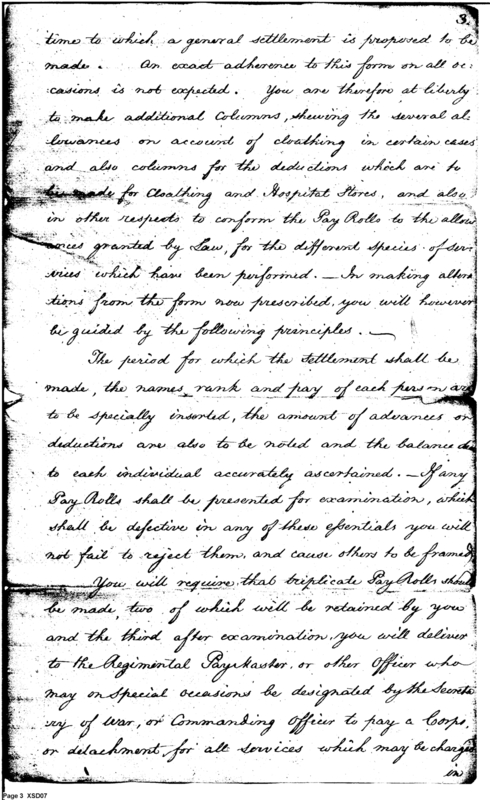 3.
time to which a general settlement is proposed to be
made. An exact adherence to this form on all oc:
casions is not expected. You are therefore at liberty
to make additional Columns, shewing the several al
lowances on account of cloathing in certain cases
and also columns for the deductions which are to
be made for Cloathing and Hospital Stores, and also
in other respects to conform the Pay Rolls to the allow
ances granted by Law, for the different species of ser
vices which have been performed. — In making altera
tions from the form now prescribed, you will however
be guided by the following principles. —
The period for which the settlement shall be
made, the names, rank and pay of each person are
to be specially inserted, the amount of advances or
deductions are also to be noted and the balance due
to each individual accurately ascertained. — If any
Pay Rolls shall be presented for examination, which
shall be defective in any of these essentials you will
not fail to reject them, and cause others to be framed.
You will require that triplicate Pay Rolls should
be made, two of which will be retained by you
and the third after examination, you will deliver
to the Regimental PayMaster, or other Officer who
may on special occasions be designated by the Secreta
ry of War, or Commanding Officer to pay a Corps,
or detachment, for all services which may be charged
in
Page 3 XSD07